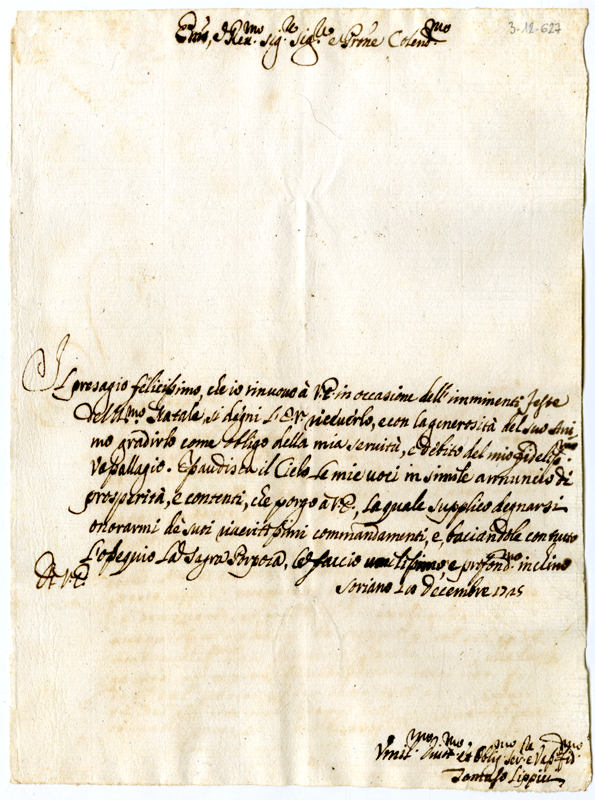 3-12-627
Emo, e Rev.mo Sig.r Sig.r e Prone Colend.mo
Il presagio felicissimo, che io rinuovo à V.E. in occasione dell' imminenti feste
del S.mo Natale, si degni l'E.V. riceverlo, e con la generosità del suo Ani
mo gradirlo come obligo della mia servitù, e debito del mio fidelis.mo
Vassallagio. Esaudisca il Cielo le mie voci in simile annuncio di
prosperità, e contenti, che porgo à V.E., la quale supplico degnarsi
onorarmi de suoi riveritissimi commandamenti, e, baciandole con tutto
l'ossequio la Sagra Porpora, le faccio umilissimo e profond.mo inclino
Di V.E.
Soriano 10 Decembre 1725
Umil.mo Divot.mo ed Oblig.mo Ser.re e Vas.
Tomaso Lippi